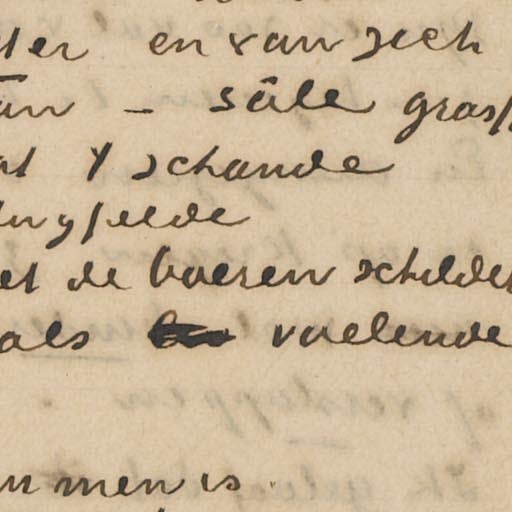 en van zich
– sâle gross
't schande
twyfelde
et de boeren schilder
als voelende
men is.